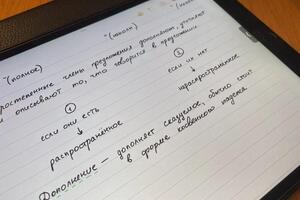 "(полное)
"(неполн
ростепенные члены предложения дополняют, уточняют
и описывают то, что говорится в предложении.
① ②
если они есть если их нет
↓ ↓
распространённое нераспространённое
Дополнение — дополняет сказуемое, обычно стоит
в форме косвенного падежа